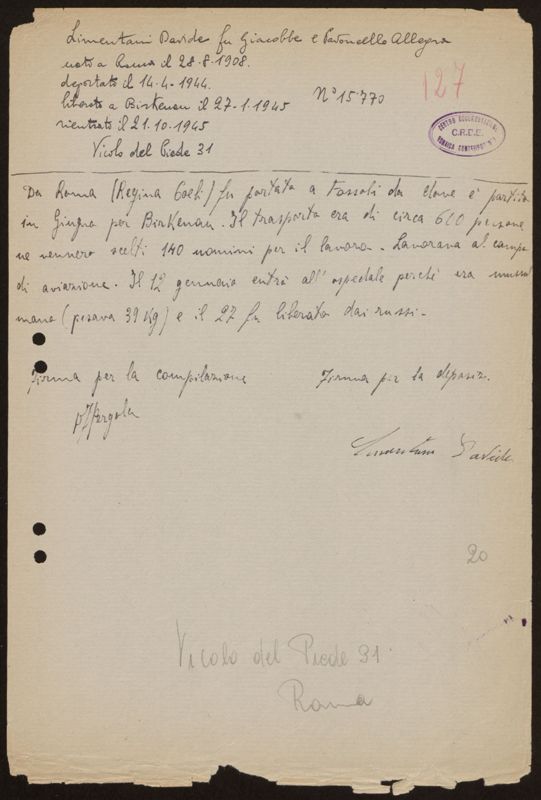 Limentani Davide fu Giacobbe e Pavoncello Allegra
nato a Roma il 28-8-1908.
deportato il 14-4-1944.
liberato a Birkenau il 27-1-1945
N° 15770
127
rientrato il 21.10-1945
Vicolo del Piede 31
CENTRO DOCUMENTAZIONE
C.R.D.E.
EBRAICA CONTEMPORANEA
Da Roma (Regina Coeli) fu portato a Fossoli da dove è partito
in Giugno per Birkenau. Il trasporto era di circa 600 persone
ne vennero scelti 140 uomini per il lavoro. Lavorava al campo
di aviazione. Il 12 gennaio entrò all'ospedale perché era mussul
mano (pesava 39 Kg) e il 27 fu liberato dai russi-
Firma per la compilazione
Firma per la deposiz.
Limentani Davide
20
Vicolo del Piede 31
Roma